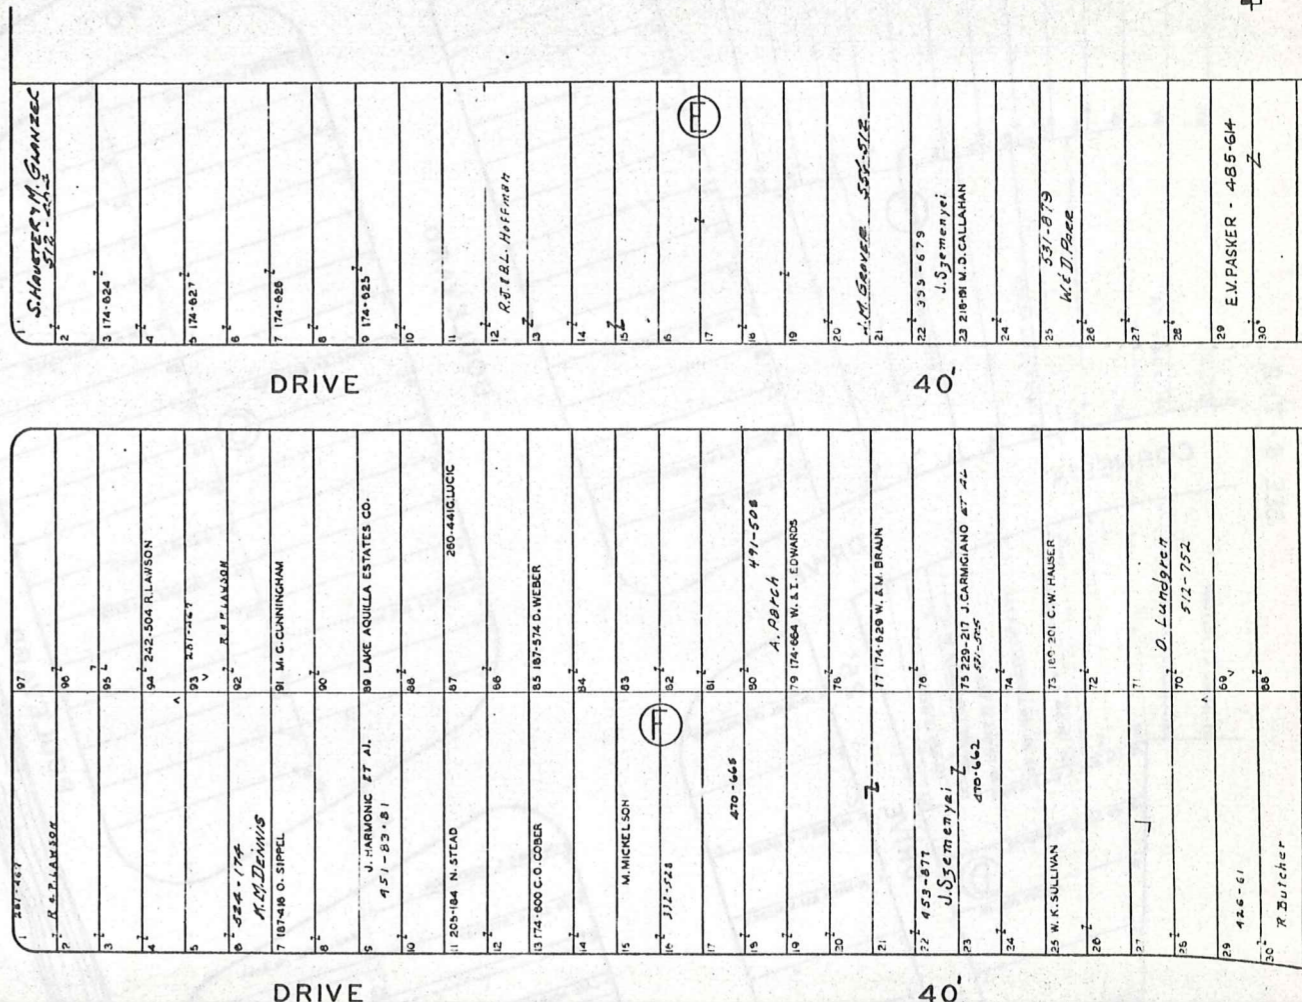 S. HAUSTER & M. GLANZEC
1
2
3 174-624
4
5 174-627
6
7 174-626
8
9 174-625
10
11
12
R.J. & B.L. Hoffman
13
14
15
16
17
18
19
20
M. GROVER 556-512
21
22 355-679
J. Szemenyei
23 218-191 M.D. CALLAHAN
24
25 551-879
W. & D. PARR
26
27
28
29
E.V. PASKER - 485-614
30
DRIVE 40'
97
96
95
94 242-504 R. LAWSON
93 281-467
R & P. LAWSON
92
91 M.G. CUNNINGHAM
90
89 LAKE AQUILLA ESTATES CO.
88
87 260-441 G. LUCIC
86
85 187-574 D. WEBER
84
83
82
81
80 491-508
A. Perch
79 174-664 W. & I. EDWARDS
78
77 174-629 W. & M. BRAUN
76
75 229-217 J. CARMIGIANO ET AL
74
73 C.W. HAUSER
72
71
D. Lundgren
70 512-752
69
68
1 281-467
R & P. LAWSON
2
3
4
5
6 524-174
K.M. DENNIS
7 187-418 O. SIPPEL
8
9 J. HARMONIC ET AL.
451-83-81
10
11 205-184 N. STEAD
12
13 174-600 C.O. COBER
14
15 M. MICKELSON
16 332-528
17
470-665
18
19
20
21
22 453-877
J. Szemenyei
23
470-662
24
25 W.K. SULLIVAN
26
27
28
29
426-61
30
R. Butcher
DRIVE 40'